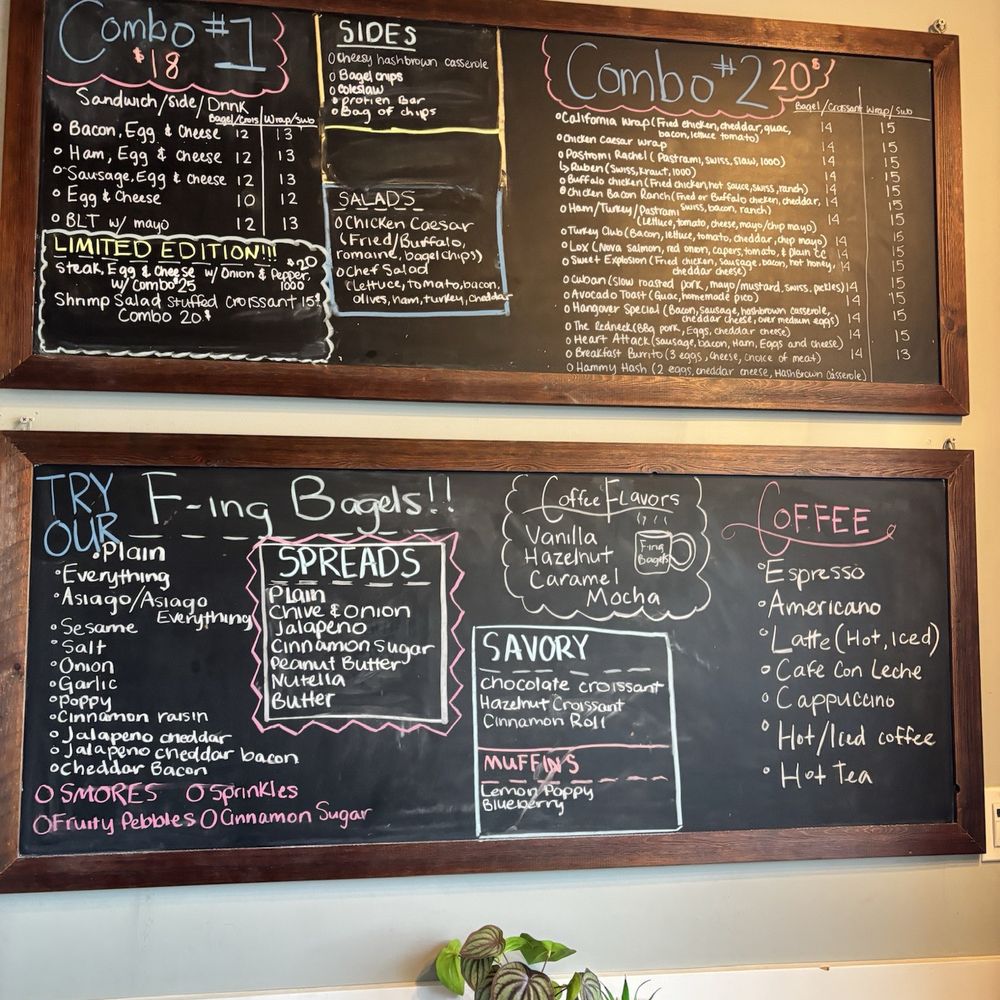 Combo #1
$18
Sandwich/side/Drink
Bagel/Crois Wrap/Sub
o Bacon, Egg & Cheese 12 13
o Ham, Egg & Cheese 12 13
o Sausage, Egg & Cheese 12 13
o Egg & Cheese 10 12
o BLT w/ mayo 12 13
LIMITED EDITION!!!
Steak, Egg & Cheese w/ Onion & Pepper, $20
w/ Combo $25 1000
Shrimp Salad Stuffed Croissant 15$
Combo 20$
SIDES
o Cheesy hashbrown casserole
o Bagel chips
o coleslaw
o protien Bar
o Bag of chips
SALADS
o Chicken Caesar
(Fried/Buffalo,
romaine, bagel chips)
o Chef Salad
(lettuce, tomato, bacon,
olives, ham, turkey, cheddar
Combo #2 20$
Bagel/Croissant Wrap/Sub
o California Wrap (Fried chicken, cheddar, guac, 14 15
bacon, lettuce tomato)
o Chicken Caesar Wrap 14 15
o Pastrami Rachel (Pastrami, swiss, slaw, 1000) 14 15
↳ Ruben (Swiss, Kraut, 1000) 14 15
o Buffalo chicken (Fried chicken, hot sauce, swiss, ranch) 14 15
o Chicken Bacon Ranch (Fried or Buffalo chicken, cheddar, 14 15
swiss, bacon, ranch)
o Ham/Turkey/Pastrami 14 15
(Lettuce, tomato, cheese, mayo/chip mayo)
o Turkey Club (Bacon, lettuce, tomato, cheddar, chip mayo) 14 15
o Lox (Nova Salmon, red onion, capers, tomato, & plain CC 14 15
o Sweet Explosion (Fried chicken, sausage, bacon, hot honey, 14 15
cheddar cheese)
o Cuban (slow roasted pork, mayo/mustard, swiss, pickles) 14 15
o Avocado Toast (Guac, homemade pico) 14 15
o Hangover Special (Bacon, sausage, hashbrown casserole, 14 15
cheddar cheese, over medium eggs)
o The Redneck (BBq pork, Eggs, cheddar cheese) 14 15
o Heart Attack (sausage, bacon, Ham, Eggs and cheese)
o Breakfast Burrito (3 eggs, cheese, choice of meat) 14 13
o Hammy Hash (2 eggs, cheddar cheese, HashBrown Casserole)
TRY OUR F-ing Bagels!!
o Plain
o Everything
o Asiago/Asiago
Everything
o Sesame
o Salt
o Onion
o Garlic
o Poppy
o Cinnamon raisin
o Jalapeno cheddar
o Jalapeno cheddar bacon
o Cheddar Bacon
O SMORES O Sprinkles
O Fruity Pebbles O Cinnamon Sugar
SPREADS
Plain
Chive & Onion
Jalapeno
Cinnamon Sugar
Peanut Butter
Nutella
Butter
Coffee Flavors
Vanilla
Hazelnut
Caramel
Mocha
F-ing
Bagels
SAVORY
Chocolate croissant
Hazelnut Croissant
Cinnamon Roll
MUFFINS
Lemon Poppy
Blueberry
COFFEE
o Espresso
o Americano
o Latte (Hot, Iced)
o Cafe Con Leche
o Cappuccino
o Hot/Iced coffee
o Hot Tea